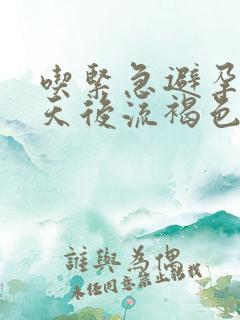 喫緊急避孕
天後流褐色
誰與為偶
未經同意禁止轉載